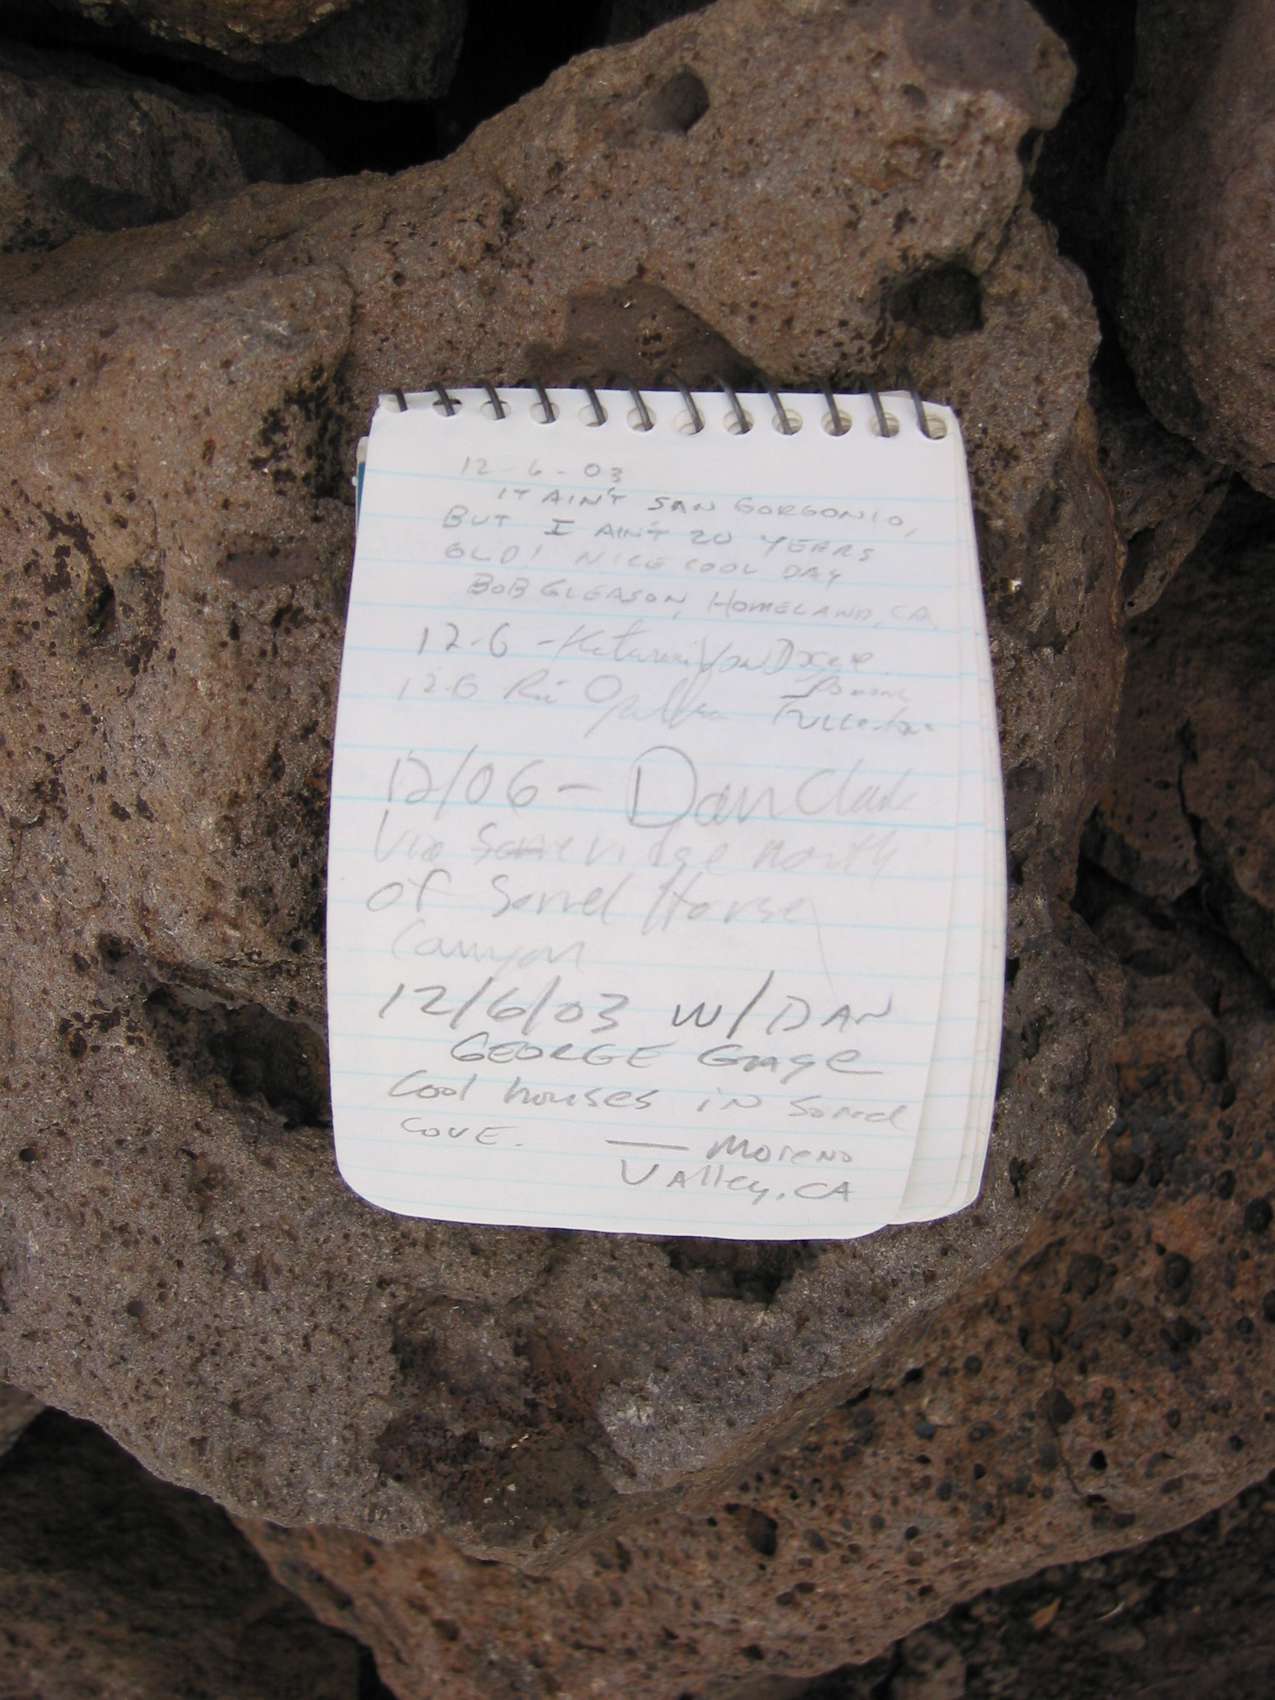 12-6-03
IT AIN'T SAN GORGONIO,
BUT I AIN'T 20 YEARS
OLD! NICE COOL DAY
BOB GLEASON, HOMELAND, CA.
12-6 -
12-6
12/06 - Dan Clark
Via ridge north
of Sorrel Horse
Canyon
12/6/03 W/ DAN
GEORGE Gage
Cool houses in Sorrel
COVE. — Moreno
Valley, CA